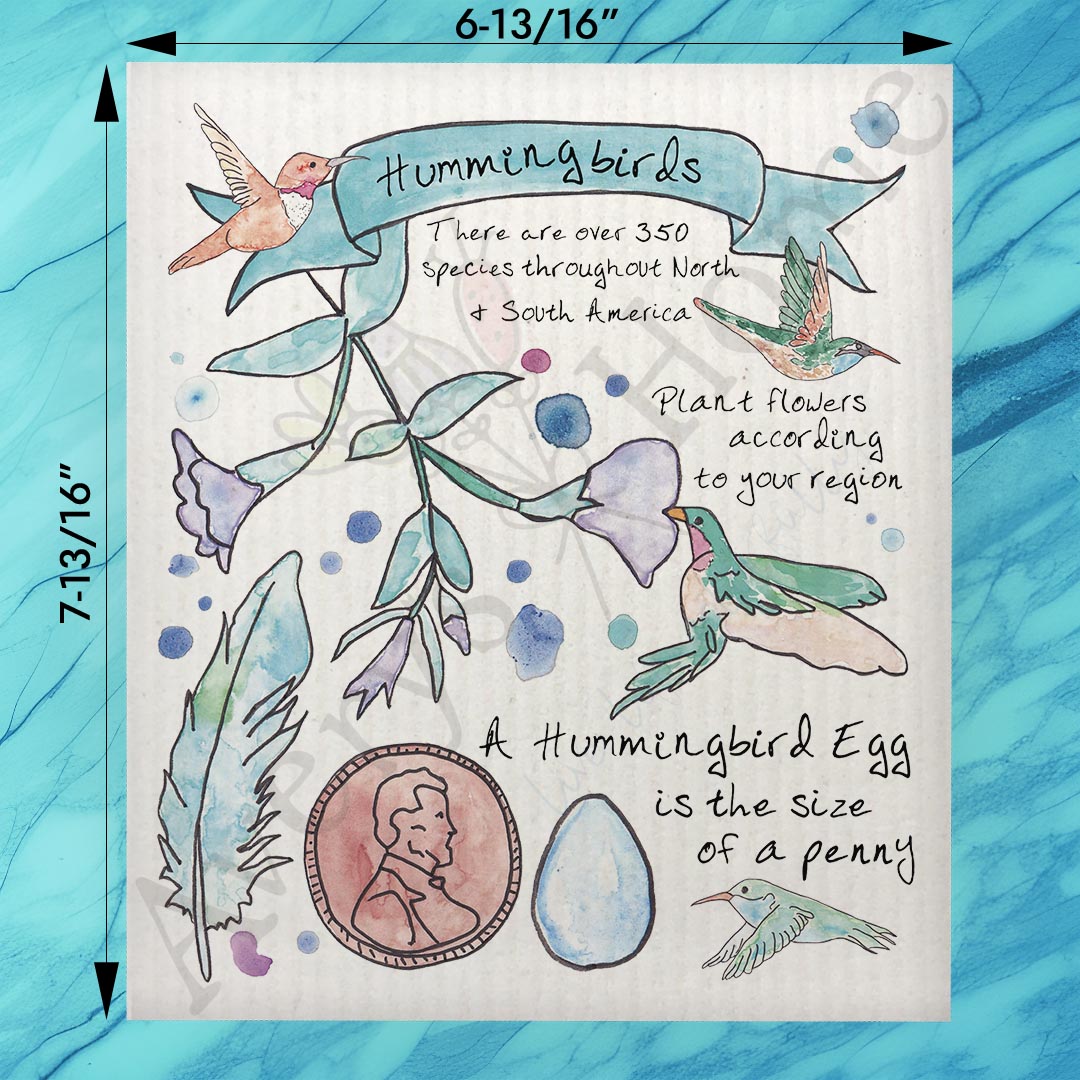 6-13/16”
7-13/16”
Hummingbirds
There are over 350
species throughout North
& South America
Plant flowers
according
to your region
A Hummingbird Egg
is the size
of a penny
Avery's Home